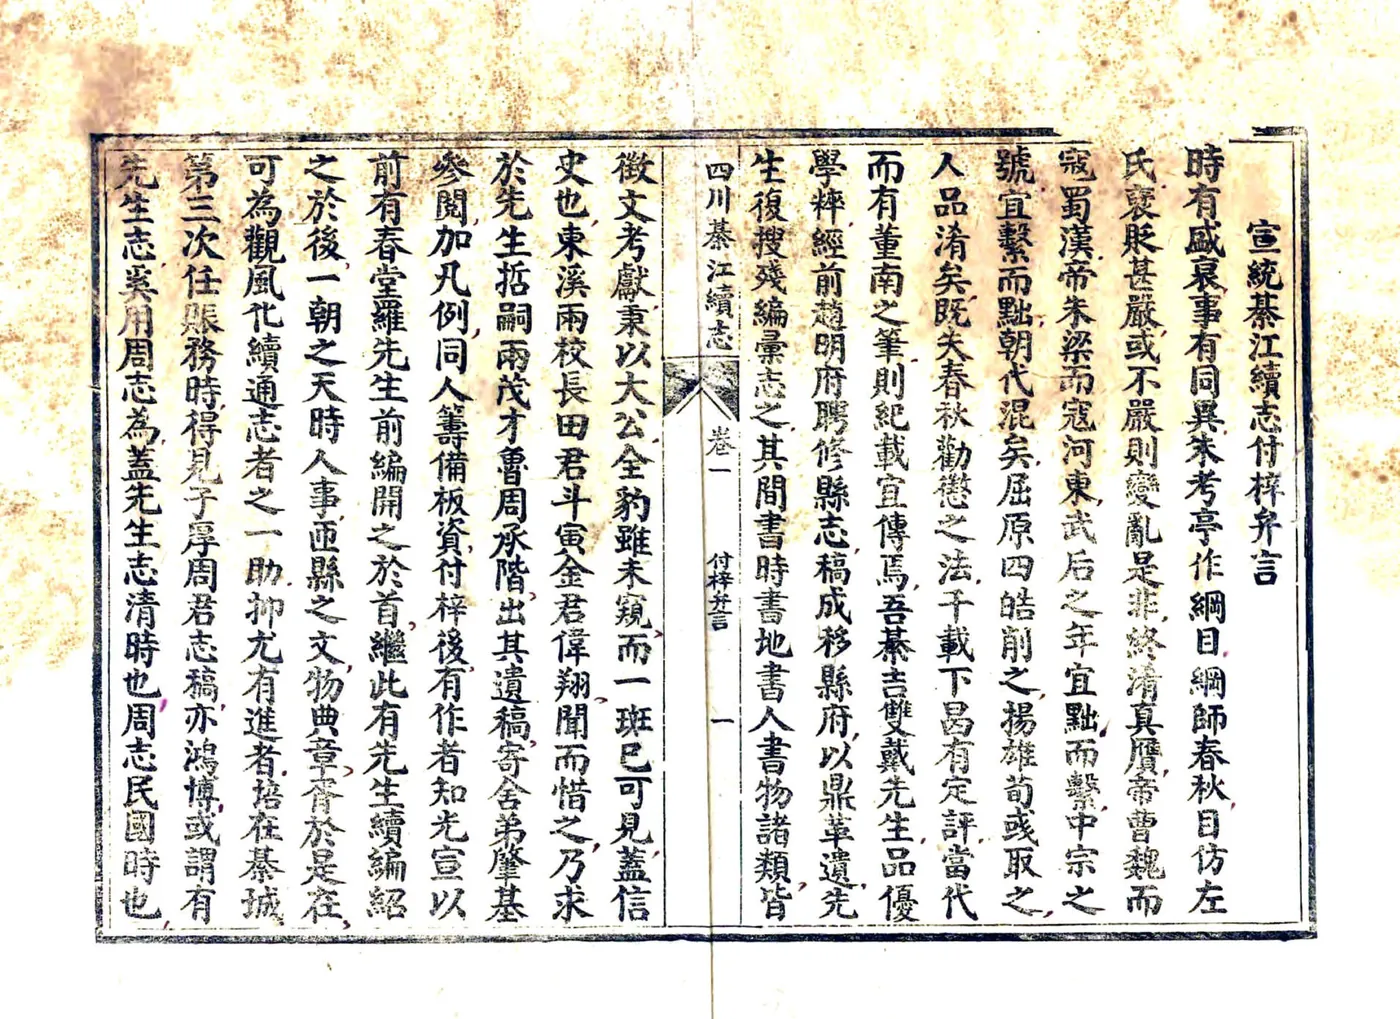 宣統綦江續志付梓弁言
時有盛衰事有同異朱考亭作綱目綱師春秋目仿左
氏褒貶甚嚴或不嚴則變亂是非終淆真贋帝曹魏而
寇蜀漢帝朱梁而寇河東武后之年宜黜而繫中宗之
號宜繫而黜朝代混矣屈原四皓削之揚雄荀彧取之
人品淆矣既失春秋勸懲之法千載下曷有定評當代
而有董南之筆則紀載宜傳焉吾綦吉雙戴先生品優
學粹經前趙明府聘修縣志稿成移縣府以鼎革遺先
生復搜殘編彙志之其間書時書地書人書物諸類皆
四川綦江續志 卷一 付梓弁言 一
徵文考獻秉以大公全豹雖未窺而一斑已可見蓋信
史也東溪兩校長田君斗寅金君偉翔聞而惜之乃求
於先生哲嗣兩茂才魯周承階出其遺稿寄舍弟肇基
參閱加凡例同人籌備板資付梓後有作者知光宣以
前有春堂羅先生前編開之於首繼此有先生續編紹
之於後一朝之天時人事匝縣之文物典章胥於是在
可為觀風化續通志者之一助抑尤有進者培在綦城
第三次任賬務時得見子厚周君志稿亦鴻博或謂有
先生志奚用周志為蓋先生志清時也周志民國時也